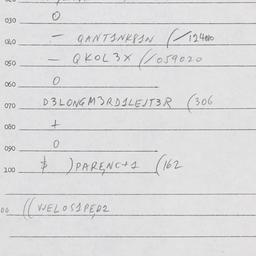 030 O
040 — QANT1NK81N (/12400
050 — QKOL3X (/059020
060 O
070 D3LONGM3RD1LEJT3R (306
080 +
090 O
100 $ )PARENC+1 (162
((VVELOS1PED2